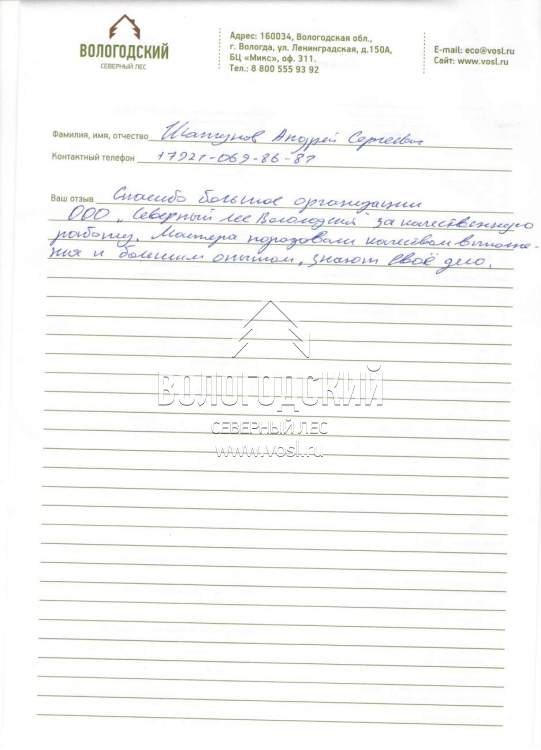 ВОЛОГОДСКИЙ
СЕВЕРНЫЙ ЛЕС
Адрес: 160034, Вологодская обл.,
г. Вологда, ул. Ленинградская, д.150А,
БЦ «Микс», оф. 311.
Тел.: 8 800 555 93 92
E-mail: eco@vosl.ru
Сайт: www.vosl.ru
Фамилия, имя, отчество Андрей Сергеевич
Контактный телефон 17921-069-86-87
Ваш отзыв Спасибо большое организации
ООО "Северный лес Вологодский" за качественную
работу. Мастера порадовали качеством выполне-
ния и большим опытом, знают своё дело.
ВОЛОГОДСКИЙ
СЕВЕРНЫЙ ЛЕС
www.vosl.ru